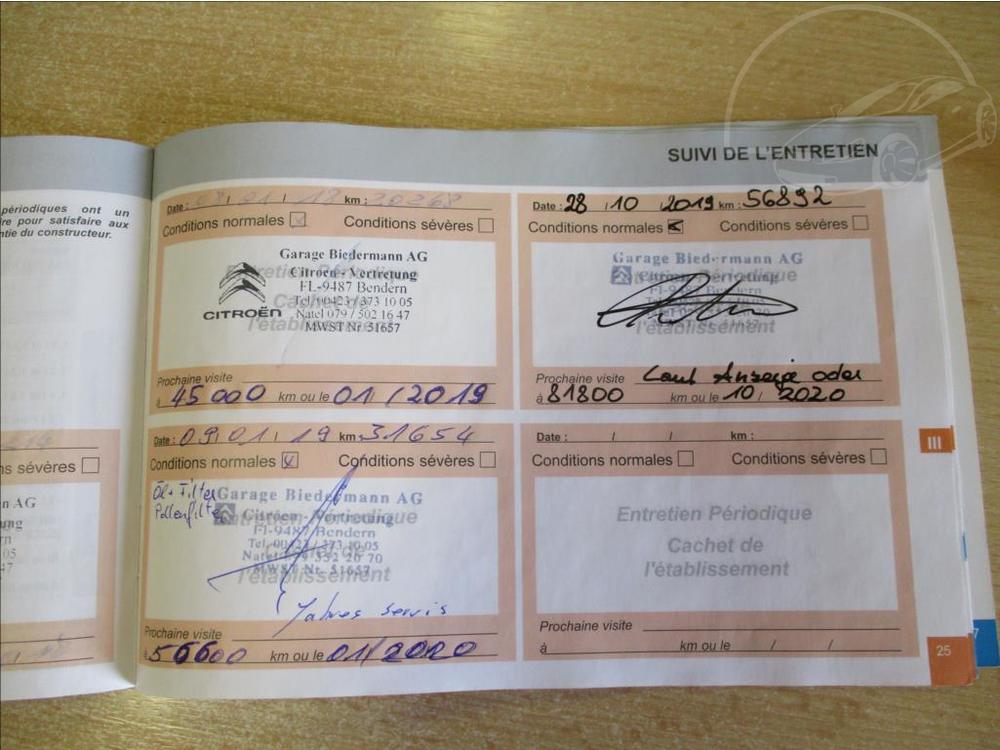 périodiques ont un
re pour satisfaire aux
ntie du constructeur.
ns sévères
n AG
ung
rn
05
47
SUIVI DE L'ENTRETIEN
Date : 08 / 01 / 18 km : 20268
Conditions normales Conditions sévères
Garage Biedermann AG
Citroën - Vertretung
FL-9487 Bendern
Tel. 00423 / 373 10 05
Natel 079 / 502 16 47
MWST Nr. 51657
CITROËN
Entretien Périodique
Cachet de
l'établissement
Prochaine visite
à 45 000 km ou le 01 / 2019
Date : 28 / 10 / 2019 km : 56892
Conditions normales Conditions sévères
Garage Biedermann AG
Citroën - Vertretung
FL-9487 Bendern
MWST Nr. 51657
Entretien Périodique
Cachet de
l'établissement
Prochaine visite Laut Anzeige oder
à 81800 km ou le 10 / 2020
Date : 09 / 01 / 19 km : 31654
Conditions normales Conditions sévères
Öl + Filter
Pollenfilter
Garage Biedermann AG
Citroën - Vertretung
FL-9487 Bendern
Tel. 00423 / 373 10 05
MWST Nr. 51657
Entretien Périodique
Cachet de
l'établissement
Jahres servis
Prochaine visite
à 56600 km ou le 01 / 2020
Date : / / km :
Conditions normales Conditions sévères
Entretien Périodique
Cachet de
l'établissement
Prochaine visite
à km ou le / /
III
25